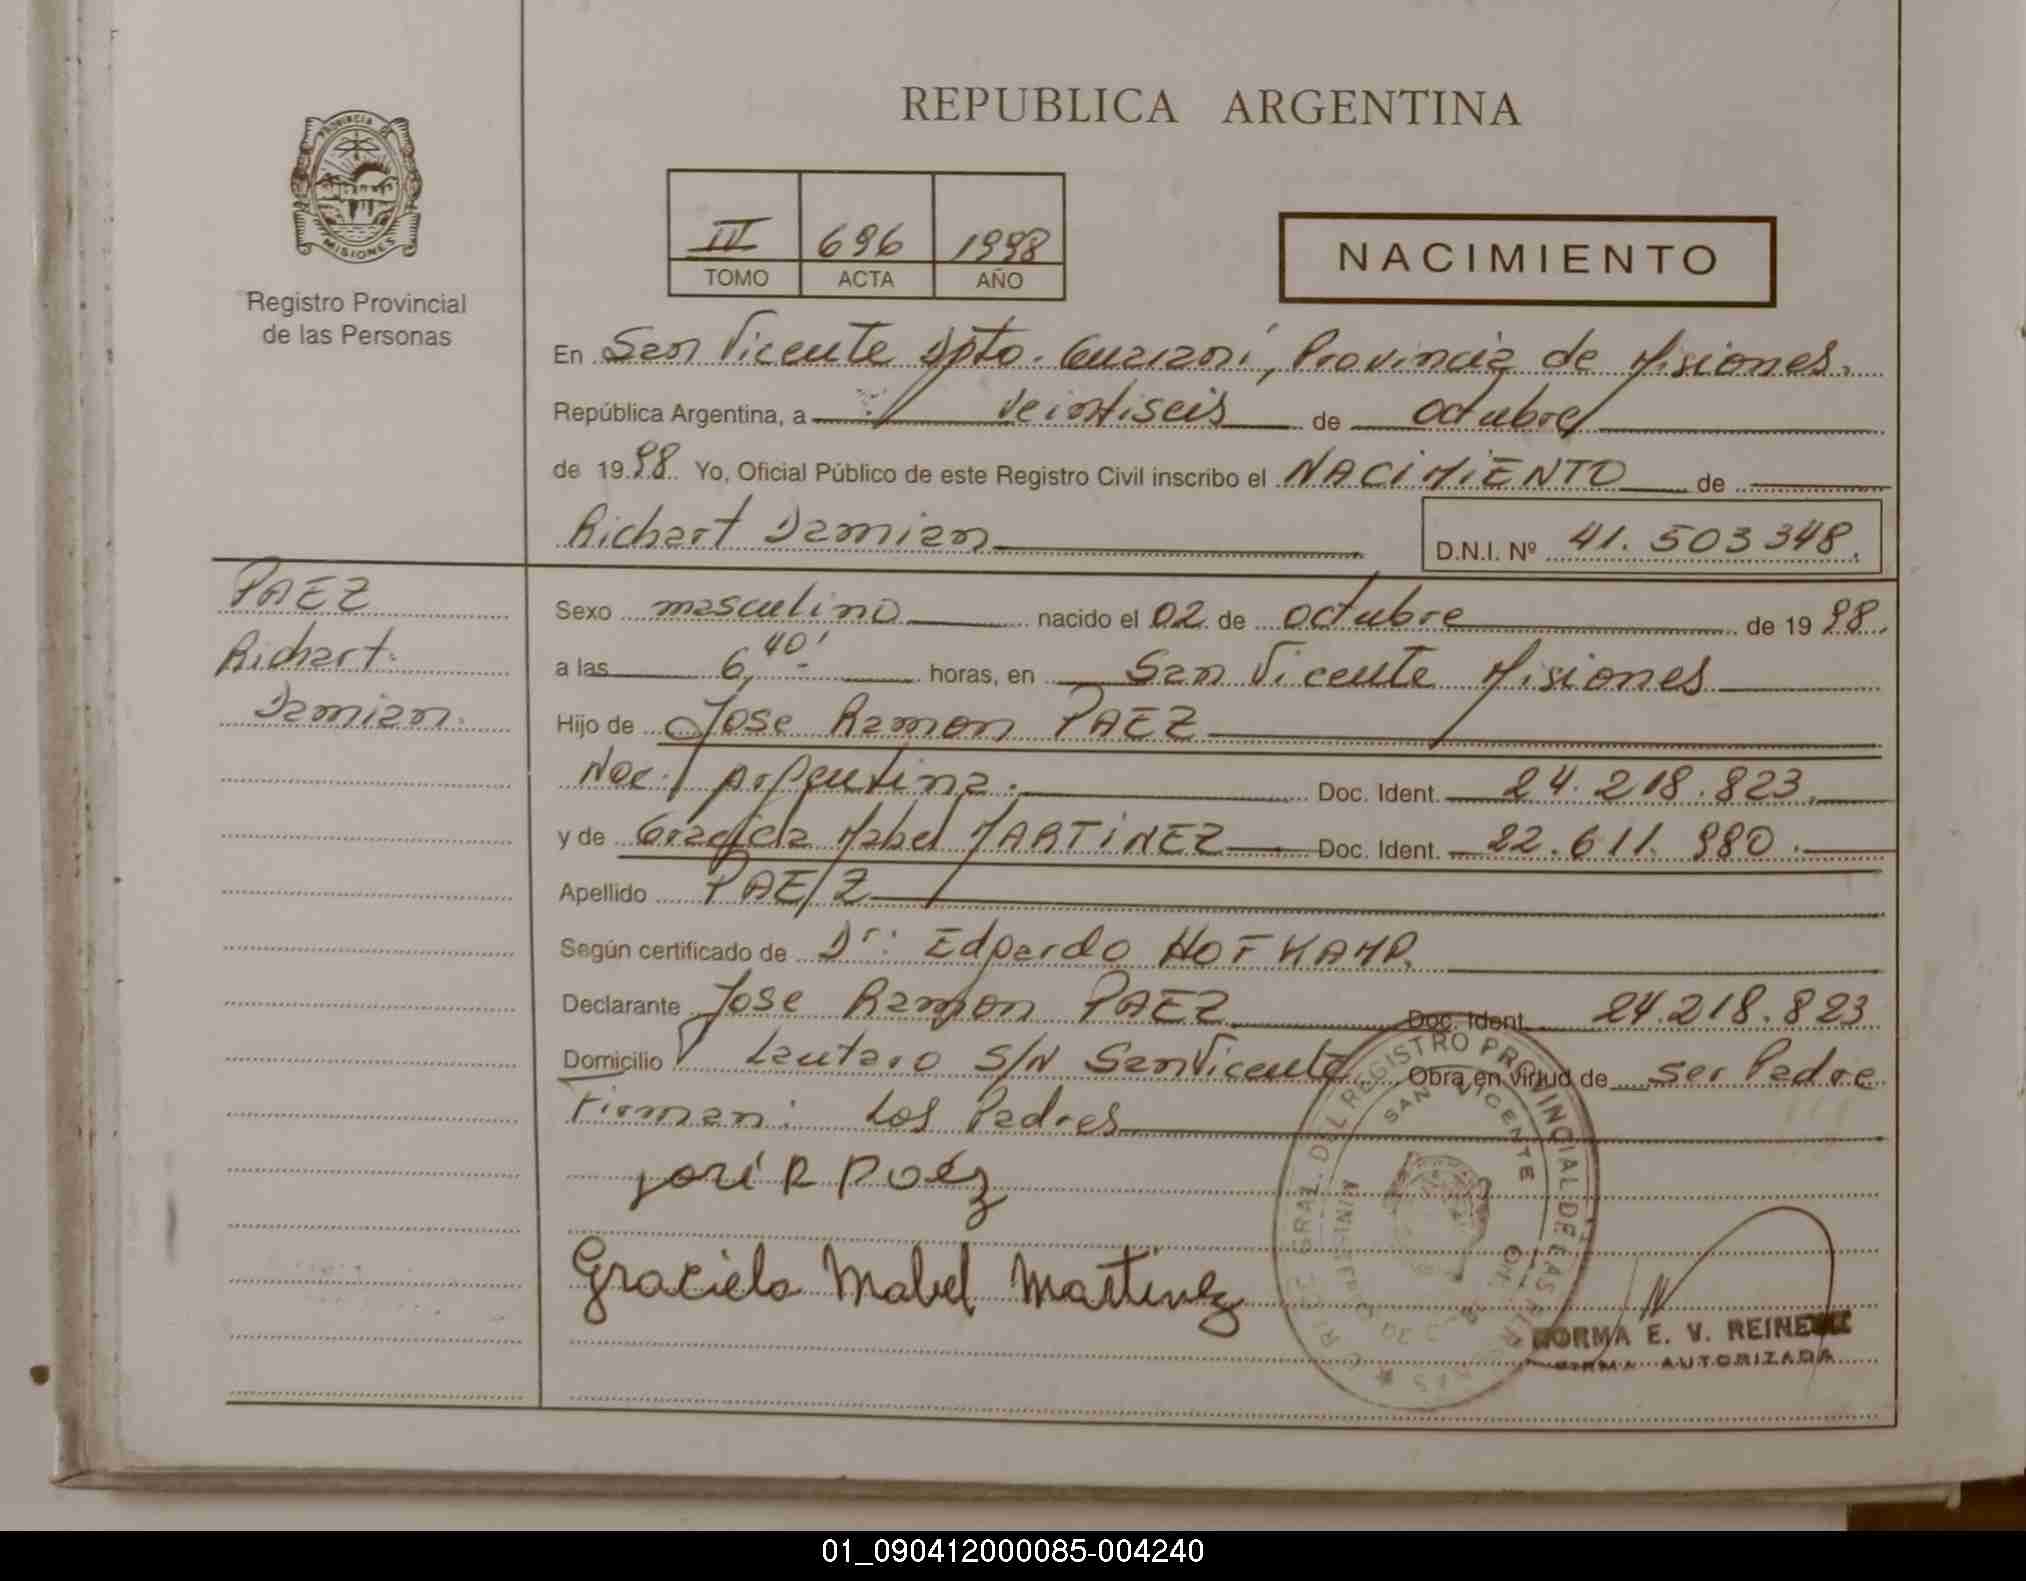 REPUBLICA ARGENTINA
PROVINCIA DE
MISIONES
Registro Provincial
de las Personas
IV 696 1998
TOMO ACTA AÑO
NACIMIENTO
En San Vicente Dpto. Guaraní, Provincia de Misiones.
República Argentina, a veintiseis de octubre
de 1998 Yo, Oficial Público de este Registro Civil inscribo el NACIMIENTO de
Richart Damian
D.N.I. Nº 41.503348.
PAEZ
Richart
Damian.
Sexo masculino nacido el 02 de octubre de 1998.
a las 6,40' horas, en San Vicente Misiones
Hijo de Jose Ramon PAEZ
Nac. Argentina. Doc. Ident. 24.218.823.
y de Graciela Mabel MARTINEZ Doc. Ident. 22.611.980.
Apellido PAEZ
Según certificado de Dr: Edgardo HOFKAMP.
Declarante Jose Ramon PAEZ Doc. Ident. 24.218.823
Domicilio Lautaro S/N San Vicente Obra en virtud de ser Padre
Firman: Los Padres
José R Paéz
Graciela Mabel Martinez
GRAL. DEL REGISTRO PROVINCIAL DE LAS PERSONAS
SAN VICENTE
NORMA E. V.
FIRMA AUTORIZADA
01_090412000085-004240